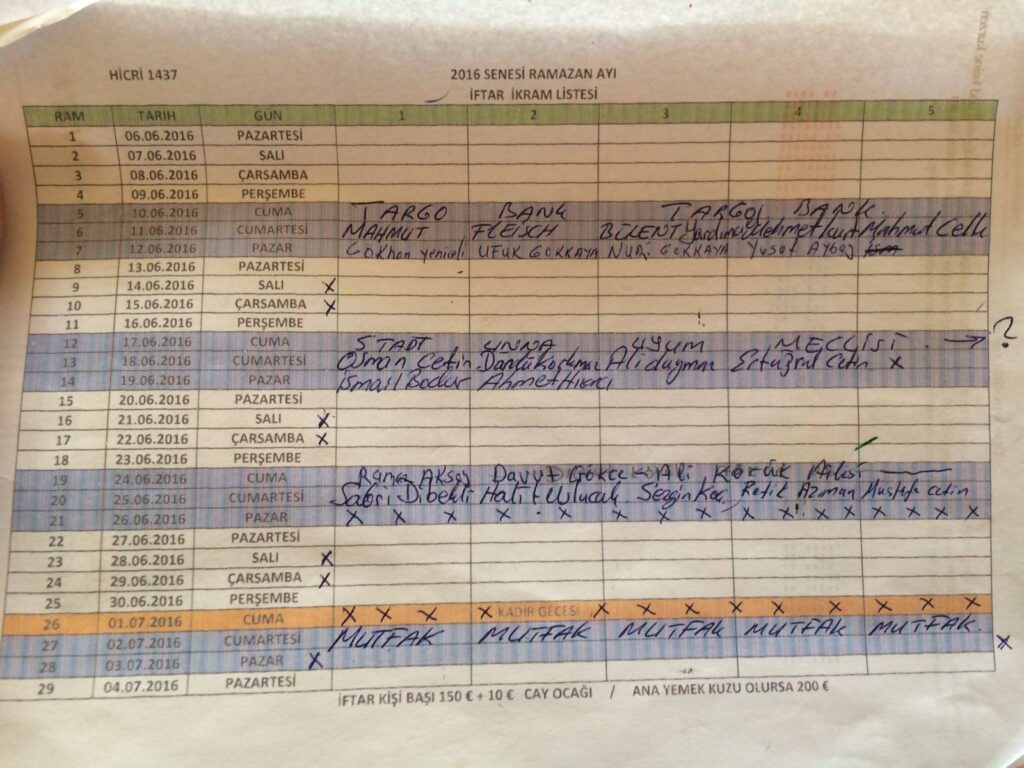 HİCRİ 1437
2016 SENESİ RAMAZAN AYI
İFTAR İKRAM LİSTESİ
RAM TARIH GÜN 1 2 3 4 5
1 06.06.2016 PAZARTESİ
2 07.06.2016 SALI
3 08.06.2016 ÇARSAMBA
4 09.06.2016 PERŞEMBE
5 10.06.2016 CUMA TARGO BANK TARGO BANK
6 11.06.2016 CUMARTESİ MAHMUT FLEISCH BÜLENT Mehmet kurt Mahmut
7 12.06.2016 PAZAR Gökhan UFUK GÖKKAYA NURİ GÖKKAYA Yusuf
8 13.06.2016 PAZARTESİ
9 14.06.2016 SALI X
10 15.06.2016 ÇARSAMBA X
11 16.06.2016 PERŞEMBE
12 17.06.2016 CUMA STADT UNNA UYUM MECLİSİ → ?
13 18.06.2016 CUMARTESİ Osman Çetin Ertuğrul Çetin X
14 19.06.2016 PAZAR İsmail Bodur Ahmet
15 20.06.2016 PAZARTESİ
16 21.06.2016 SALI X
17 22.06.2016 ÇARSAMBA X
18 23.06.2016 PERŞEMBE
19 24.06.2016 CUMA Davut Gökçek Ali KÖRÜK Ailesi
20 25.06.2016 CUMARTESİ Sabri Dibekli Halit Sezgin Koç Refik Azman Mustafa Çetin
21 26.06.2016 PAZAR X X X X X X X X X X X X X X X
22 27.06.2016 PAZARTESİ
23 28.06.2016 SALI X
24 29.06.2016 ÇARSAMBA X
25 30.06.2016 PERŞEMBE
26 01.07.2016 CUMA X X X X KADIR GECESİ X X X X X X X X X
27 02.07.2016 CUMARTESİ MUTFAK MUTFAK MUTFAK MUTFAK MUTFAK X
28 03.07.2016 PAZAR X
29 04.07.2016 PAZARTESİ
İFTAR KİŞİ BAŞI 150 € + 10 € CAY OCAĞI / ANA YEMEK KUZU OLURSA 200 €